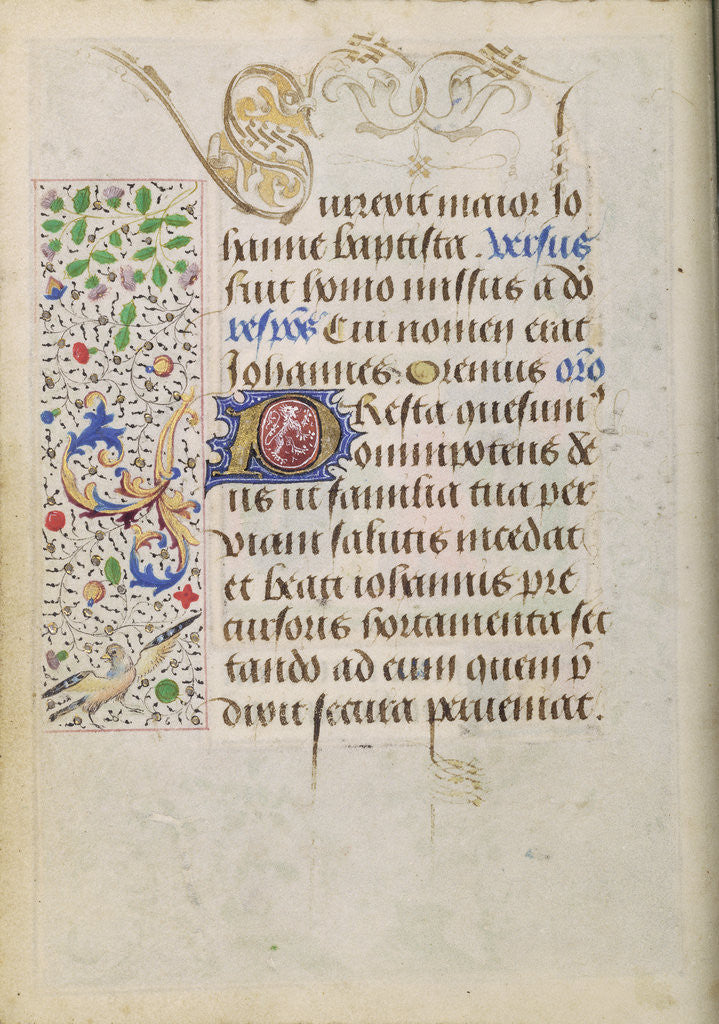 Surrexit maior Jo
hanne baptista. versus
fuit homo missus a deo
respons Cui nomen erat
Johannes. Oremus oro
PResta quesum9
omnipotens de
us ut familia tua per
viam salutis incedat
et beati iohannis pre
cursoris hortamenta sec
tando ad eum quem p̄
dixit secura perueniat.